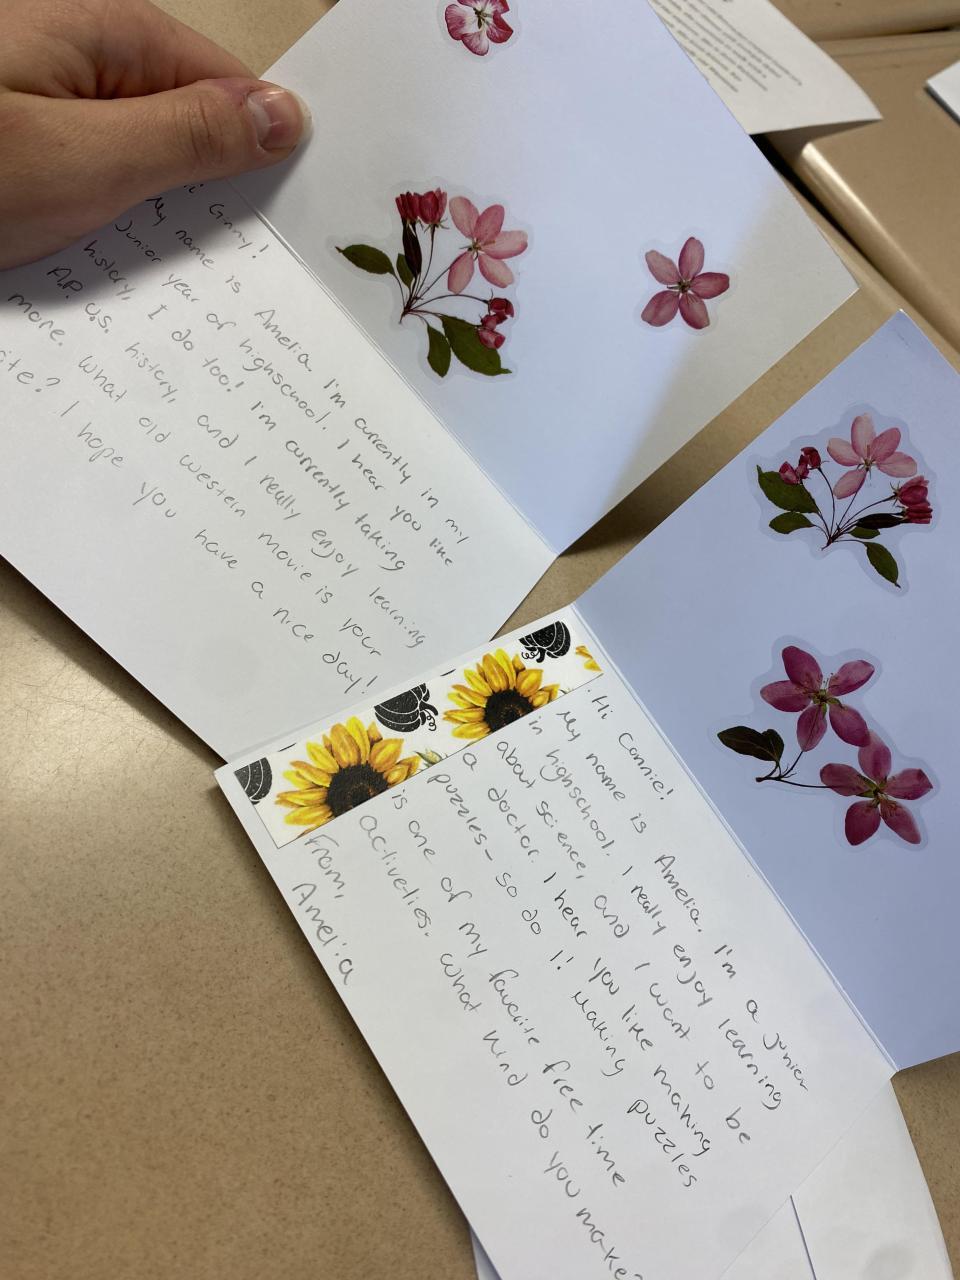 Hi Ginny!
My name is Amelia. I'm currently in my
Junior year of highschool. I hear you like
history, I do too! I'm currently taking
A.P. U.S. history, and I really enjoy learning
more. What old western movie is your
I hope you have a nice day!
Hi Connie!
My name is Amelia. I'm a junior
in highschool. I really enjoy learning
about science, and I want to be
a doctor. I hear you like making
puzzles - so do I! Making puzzles
is one of my favorite free time
activeties. What kind do you make?
From,
Amelia